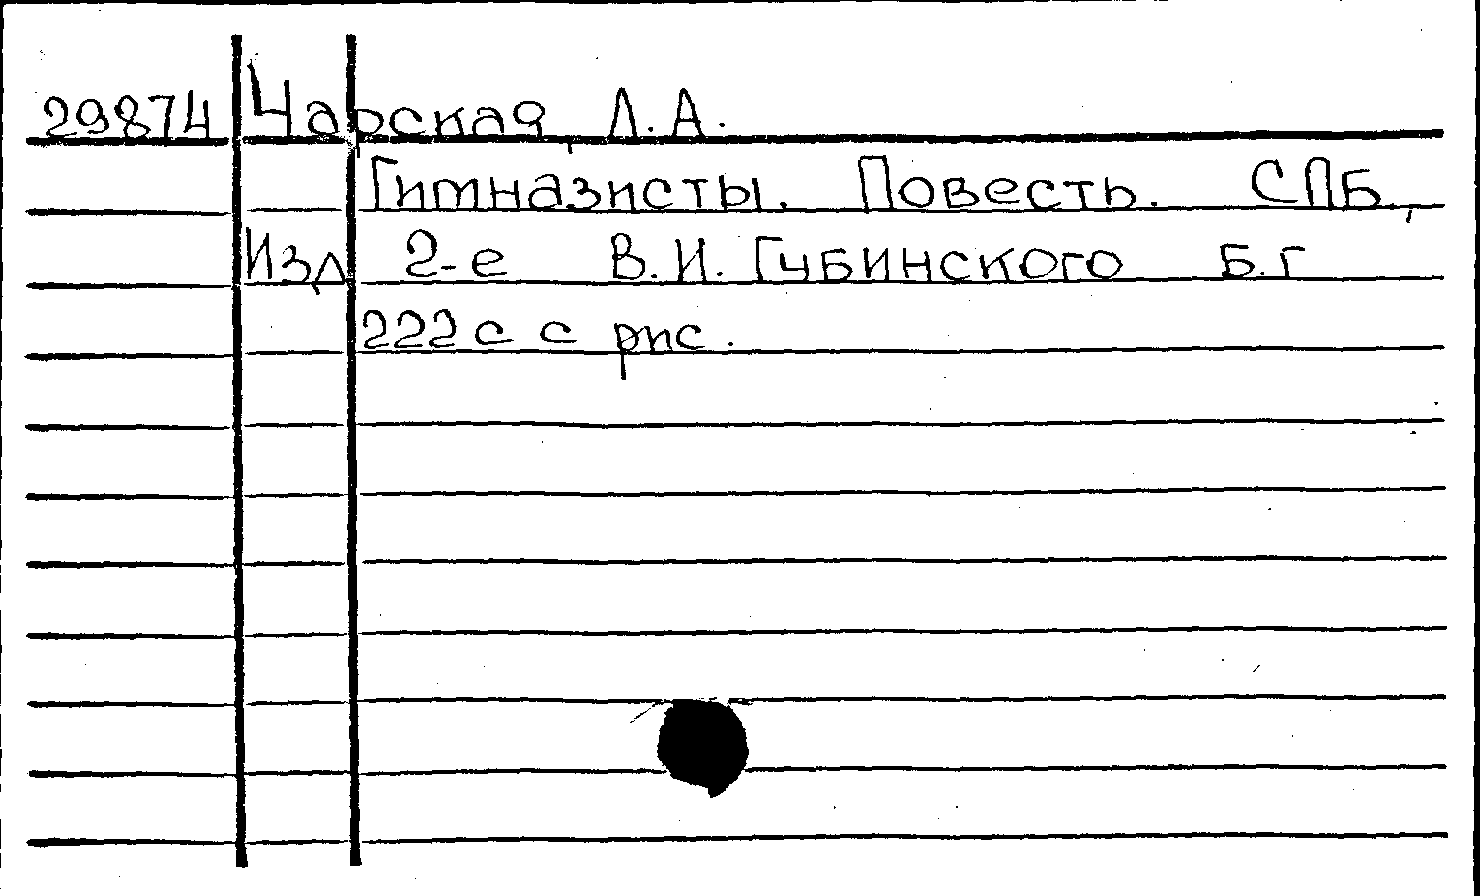 29874 Чарская, Л. А.
Гимназисты. Повесть. СПБ.,
Изд 2-е В. И. Губинского Б. г
222 с с рис.